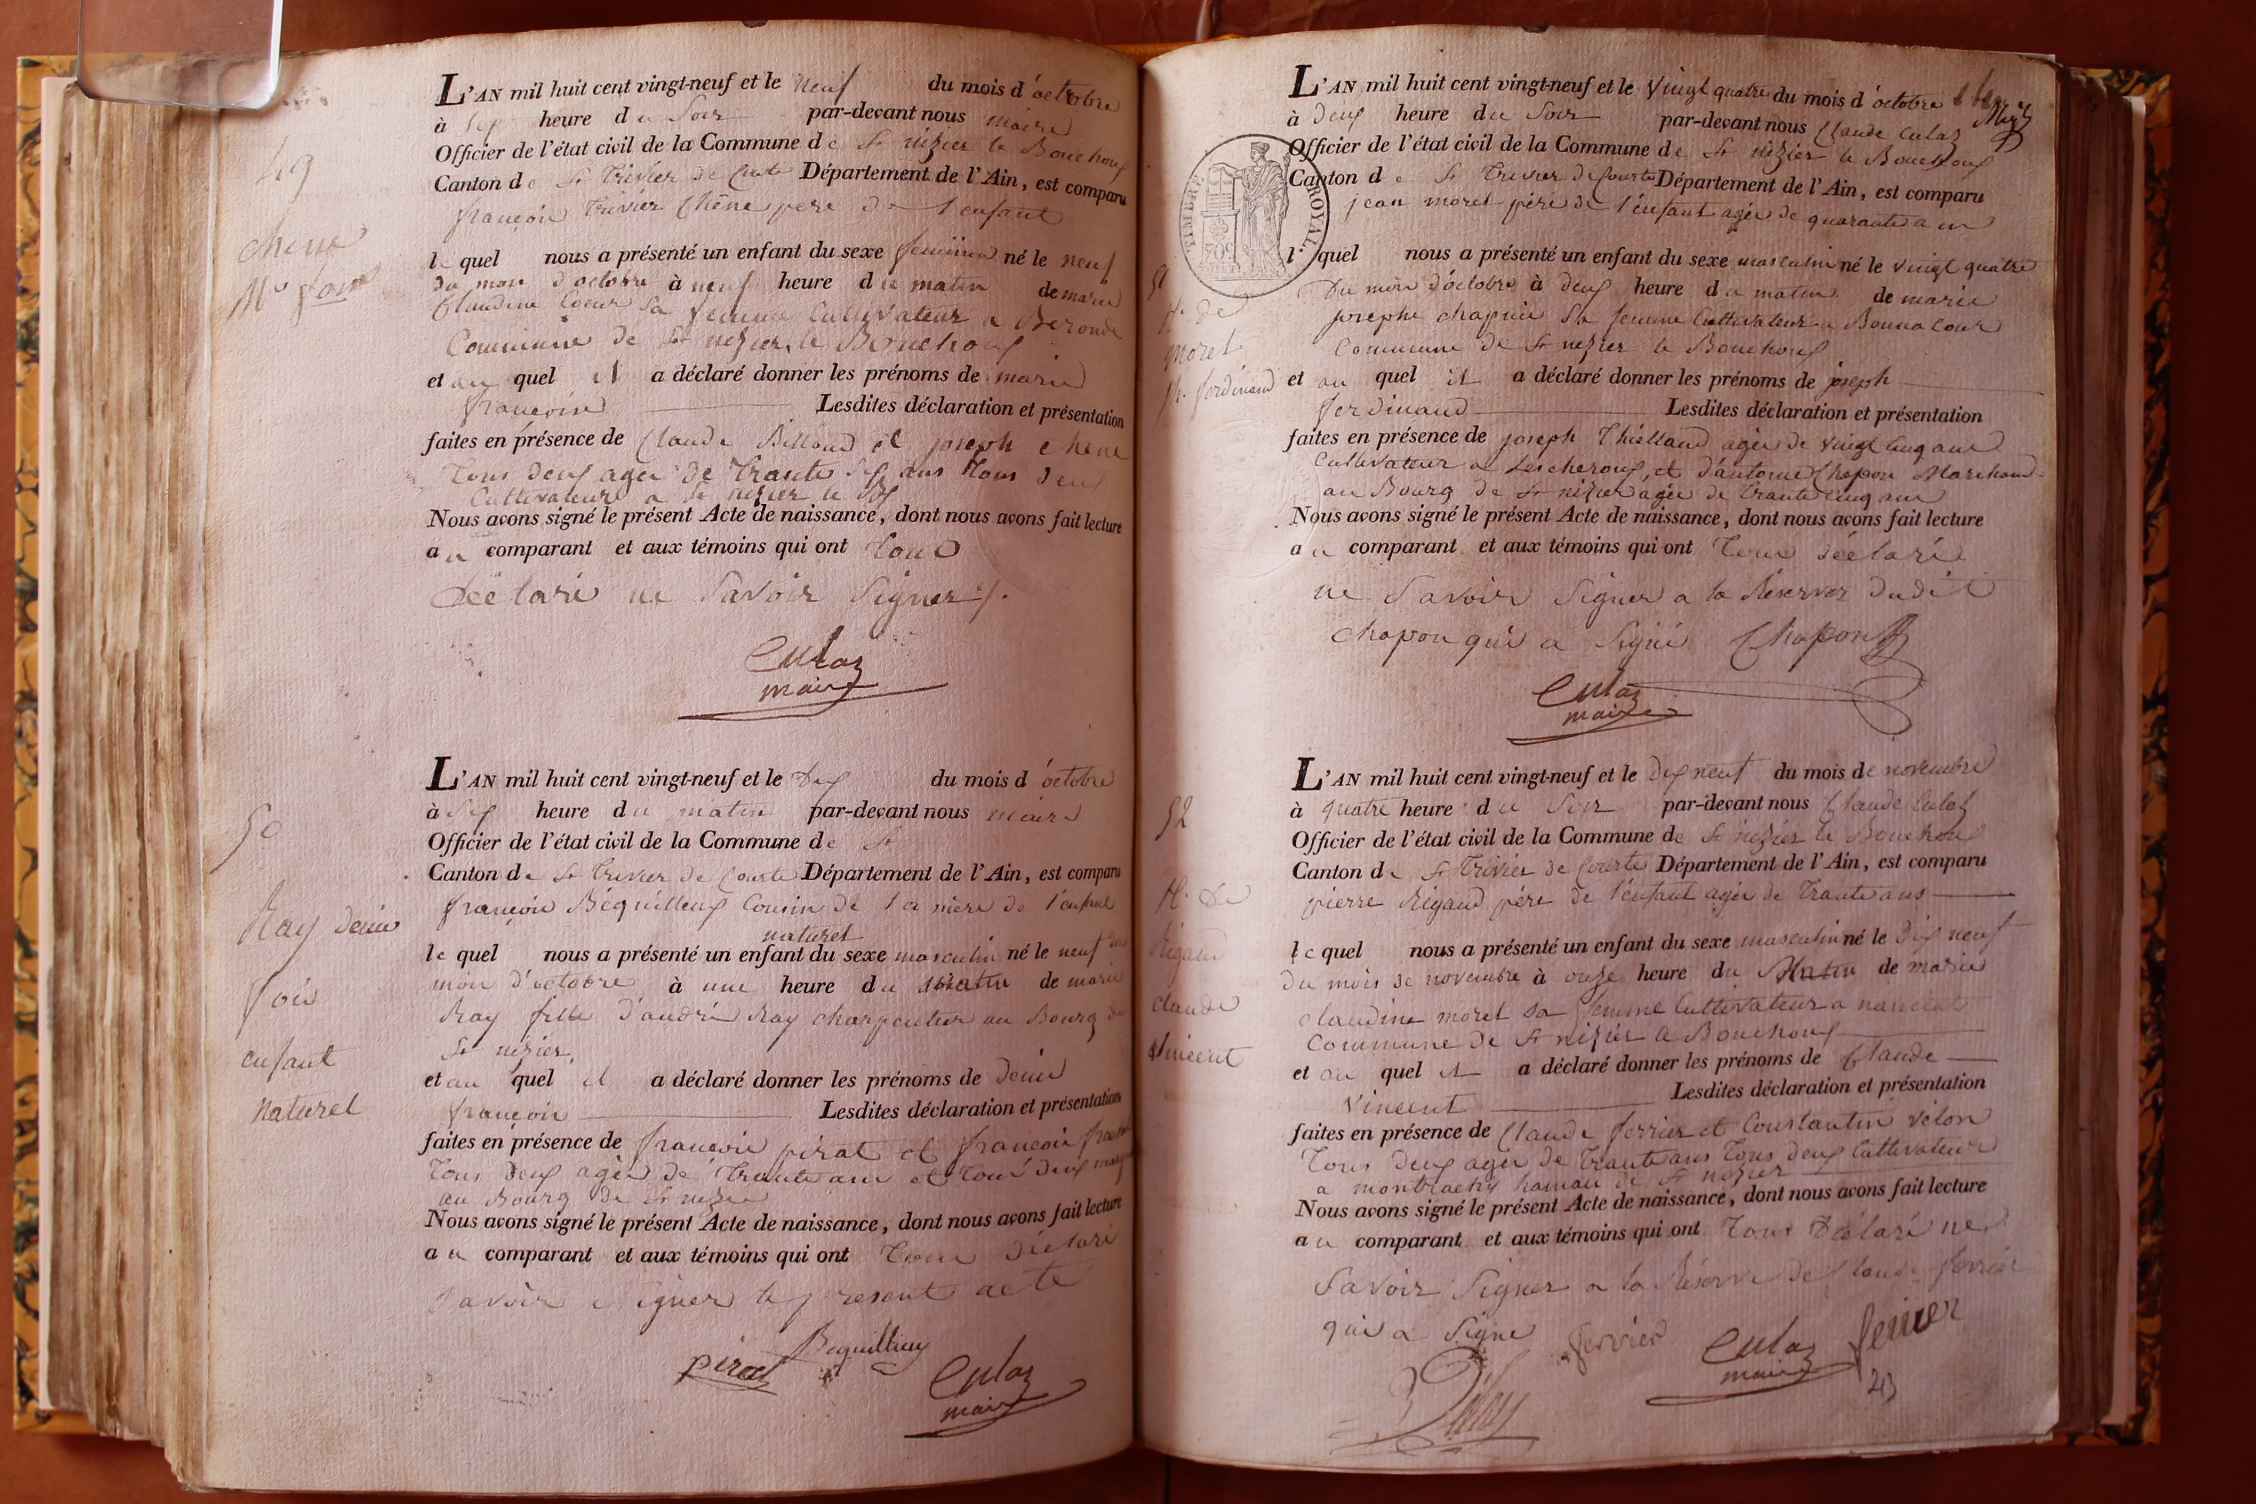 49
chene
Me fcoise
L'AN mil huit cent vingt-neuf et le neuf du mois d'octobre
à sept heure du Soir par-devant nous maire
Officier de l'état civil de la Commune de St nizier le Bouchoux
Canton de St Trivier de Courte Département de l'Ain, est comparu
françois Trivier Chêne pere de l'enfant
le quel nous a présenté un enfant du sexe feminin né le neuf
du mois d'octobre à neuf heure du matin de marie
Claudine Coeur sa femme Cultivateur a
Commune de St nizier le Bouchoux
et au quel il a déclaré donner les prénoms de marie
françoise Lesdites déclaration et présentation
faites en présence de Claude Billoud et joseph chene
Tous deux agés de Trante six ans tous deux
Cultivateurs a St nizier le Bx
Nous avons signé le présent Acte de naissance, dont nous avons fait lecture
au comparant et aux témoins qui ont tous
Déclaré ne Savoir Signer
Culaz
maire
50
Ray denis
fois
enfant
naturel
L'AN mil huit cent vingt-neuf et le Dix du mois d'octobre
à Six heure du matin par-devant nous maire
Officier de l'état civil de la Commune de St
Canton de St Trivier de Courte Département de l'Ain, est comparu
françois Béquilleux Cousin de la mère de l'enfant
naturel
le quel nous a présenté un enfant du sexe masculin né le neuf du
mois d'octobre à une heure du matin de marie
Ray fille d'andré Ray charpentier au Bourg de
St nizier
et au quel il a déclaré donner les prénoms de denis
françois Lesdites déclaration et présentation
faites en présence de françois pirat et françois
Tous deux agés de Trante ans et tous deux
au Bourg de St nizier
Nous avons signé le présent Acte de naissance, dont nous avons fait lecture
au comparant et aux témoins qui ont Tous déclaré
savoir signer le present acte
Bequilleux
pirat
Culaz
maire
TIMBRE ROYAL
51
Ht de
moret
jh. ferdinand
L'AN mil huit cent vingt-neuf et le vingt quatre du mois d'octobre
à Deux heure du Soir par-devant nous Claude Culaz
Officier de l'état civil de la Commune de St nizier le Bouchoux
Canton de St Trivier de Courte Département de l'Ain, est comparu
jean moret père de l'enfant agée de quarante un
le quel nous a présenté un enfant du sexe masculin né le vingt quatre
Du mois d'octobre à Deux heure du matin de marie
josephe chapuis Sa femme Cultivateur a
Commune de St nizier le Bouchoux
et au quel il a déclaré donner les prénoms de joseph
ferdinand Lesdites déclaration et présentation
faites en présence de joseph Thielland agée de vingt cinq ans
Cultivateur a Lescheroux, et d'antoine Chapon Marchand
au Bourg de St nizier agée de trante cinq ans
Nous avons signé le présent Acte de naissance, dont nous avons fait lecture
au comparant et aux témoins qui ont Tous déclaré
ne Savoir Signer a la Réserves dudit
chapon qui a Signé Chapon
Culaz
maire
52
Ht De
Rigaud
claude
vincent
L'AN mil huit cent vingt-neuf et le Dix neuf du mois de novembre
à quatre heure du Soir par-devant nous Claude Culaz
Officier de l'état civil de la Commune de St nizier le Bouchoux
Canton de St Trivier de Courte Département de l'Ain, est comparu
pierre Rigaud père de l'enfant agée de Trante ans
le quel nous a présenté un enfant du sexe masculin né le Dix neuf
Du mois de novembre à onze heure du Matin de marie
claudine moret sa femme Cultivateur a
Commune de St nizier le Bouchoux
et au quel il a déclaré donner les prénoms de Claude
vincent Lesdites déclaration et présentation
faites en présence de Claude ferrier et Constantin velon
Tous deux agée de Trante ans Tous deux Cultivateur
a hamau de St nizier
Nous avons signé le présent Acte de naissance, dont nous avons fait lecture
au comparant et aux témoins qui ont Tous Déclaré ne
Savoir Signer a la Réserve de Claude ferrier
qui a Signe ferrier
Culaz
maire